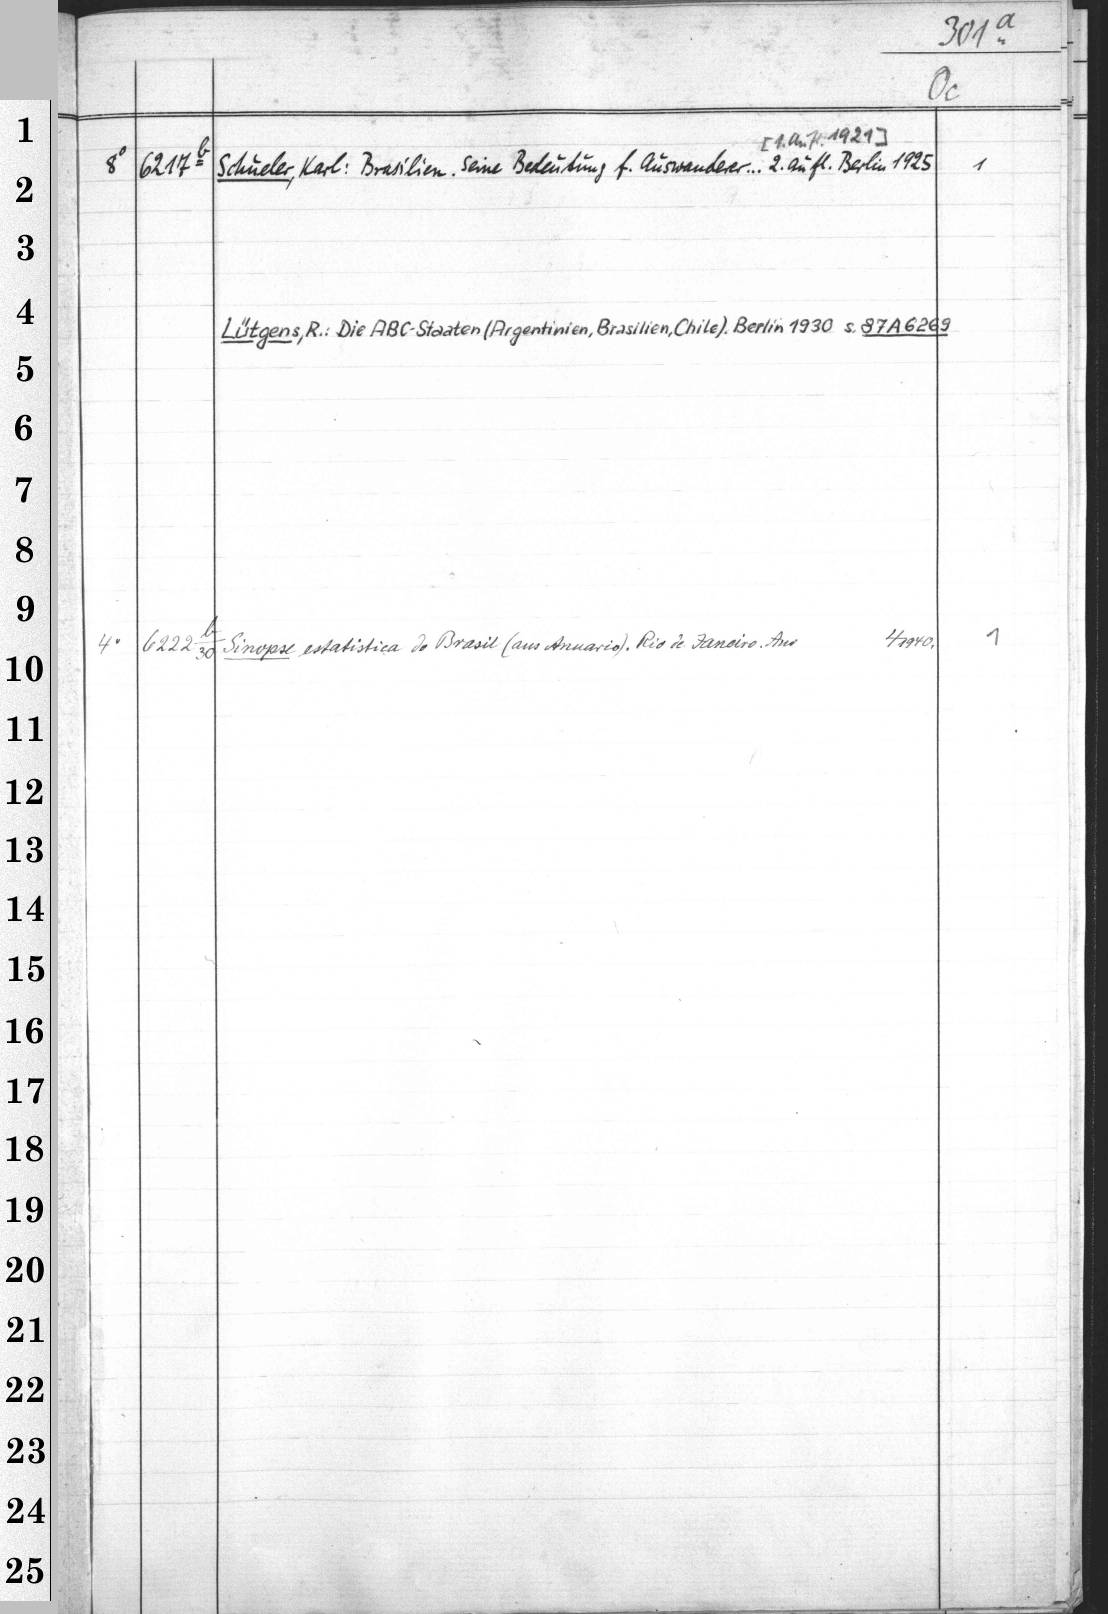 301 a
Oc
1
[1. Aufl. 1921]
8° 6217 b Schueler, Karl: Brasilien. Seine Bedeutung f. Auswanderer... 2. Aufl. Berlin 1925 1
2
3
4
Lütgens, R.: Die ABC-Staaten (Argentinien, Brasilien, Chile). Berlin 1930 s. 87A6269
5
6
7
8
9
4° 6222 b/30 Sinopse estatistica do Brasil (aus Anuario). Rio de Janeiro. Ano 4 1940. 1
10
11
12
13
14
15
16
17
18
19
20
21
22
23
24
25